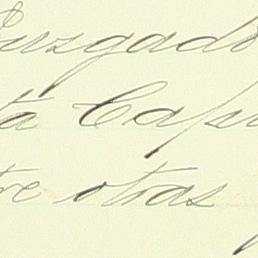 Juzgado
ta Capi
tre otras